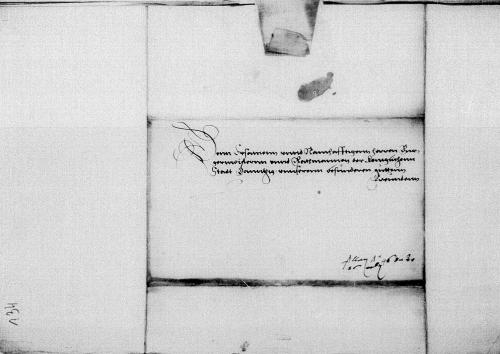 Denn Ersamenn unnd Namhafftigenn herren Bur-
germeisterenn unnd Rathmannen der koniglichenn
Stadt Danntzig unnserenn besonderen gutten
Freundenn
134